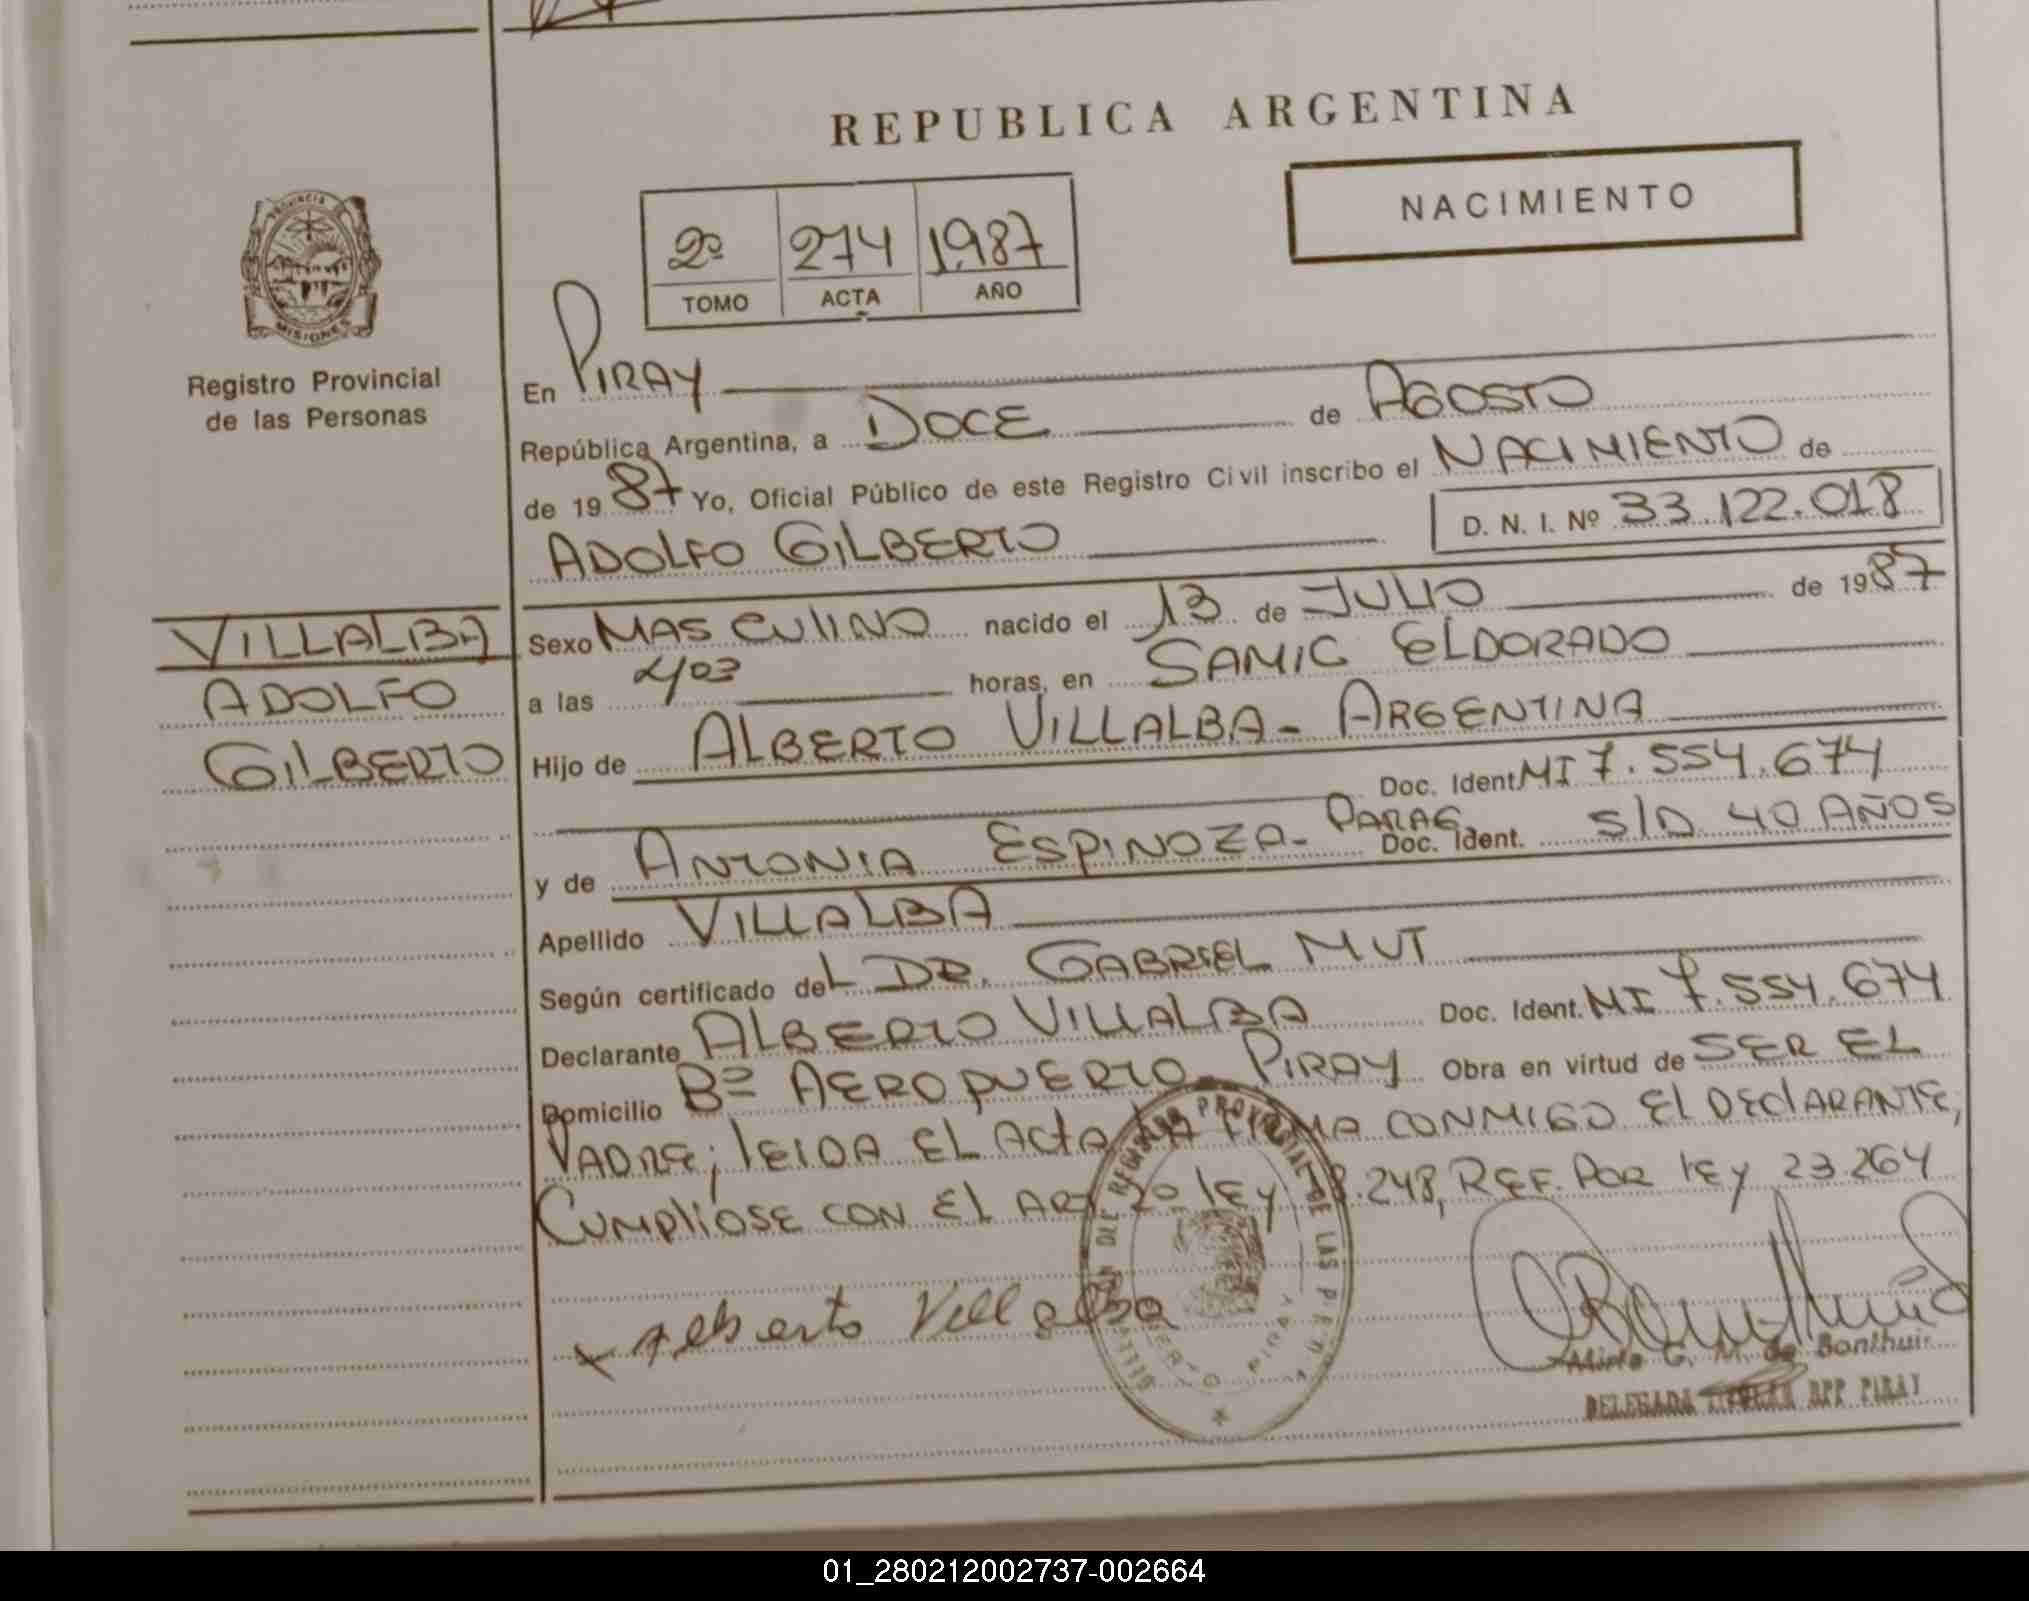 REPUBLICA ARGENTINA
NACIMIENTO
2º 274 1.987
TOMO ACTA AÑO
PROVINCIA DE
MISIONES
Registro Provincial
de las Personas
En PIRAY
República Argentina, a DOCE de AGOSTO
de 1987 Yo, Oficial Público de este Registro Civil inscribo el NACIMIENTO de
ADOLFO GILBERTO D. N. I. Nº 33.122.018
VILLALBA
ADOLFO
GILBERTO
Sexo MASCULINO nacido el 13 de JULIO de 1987
a las 403 horas, en SAMIC ELDORADO
Hijo de ALBERTO VILLALBA - ARGENTINA
Doc. Ident. MI 7.554.674
y de ANTONIA ESPINOZA - PARAG. Doc. Ident. S/D 40 AÑOS
Apellido VILLALBA
Según certificado del DR. GABRIEL MUT
Declarante ALBERTO VILLALBA Doc. Ident. MI 7.554.674
Domicilio Bº AEROPUERTO - PIRAY Obra en virtud de SER EL
PADRE; LEIDA EL ACTA LA FIRMA CONMIGO EL DECLARANTE;
CUMPLIOSE CON EL ART 2º LEY 18.248, REF. POR LEY 23.264
Alberto Villalba
Mirta G. M. de Bonthuis
DELEGADA TITULAR RPP PIRAY
01_280212002737-002664